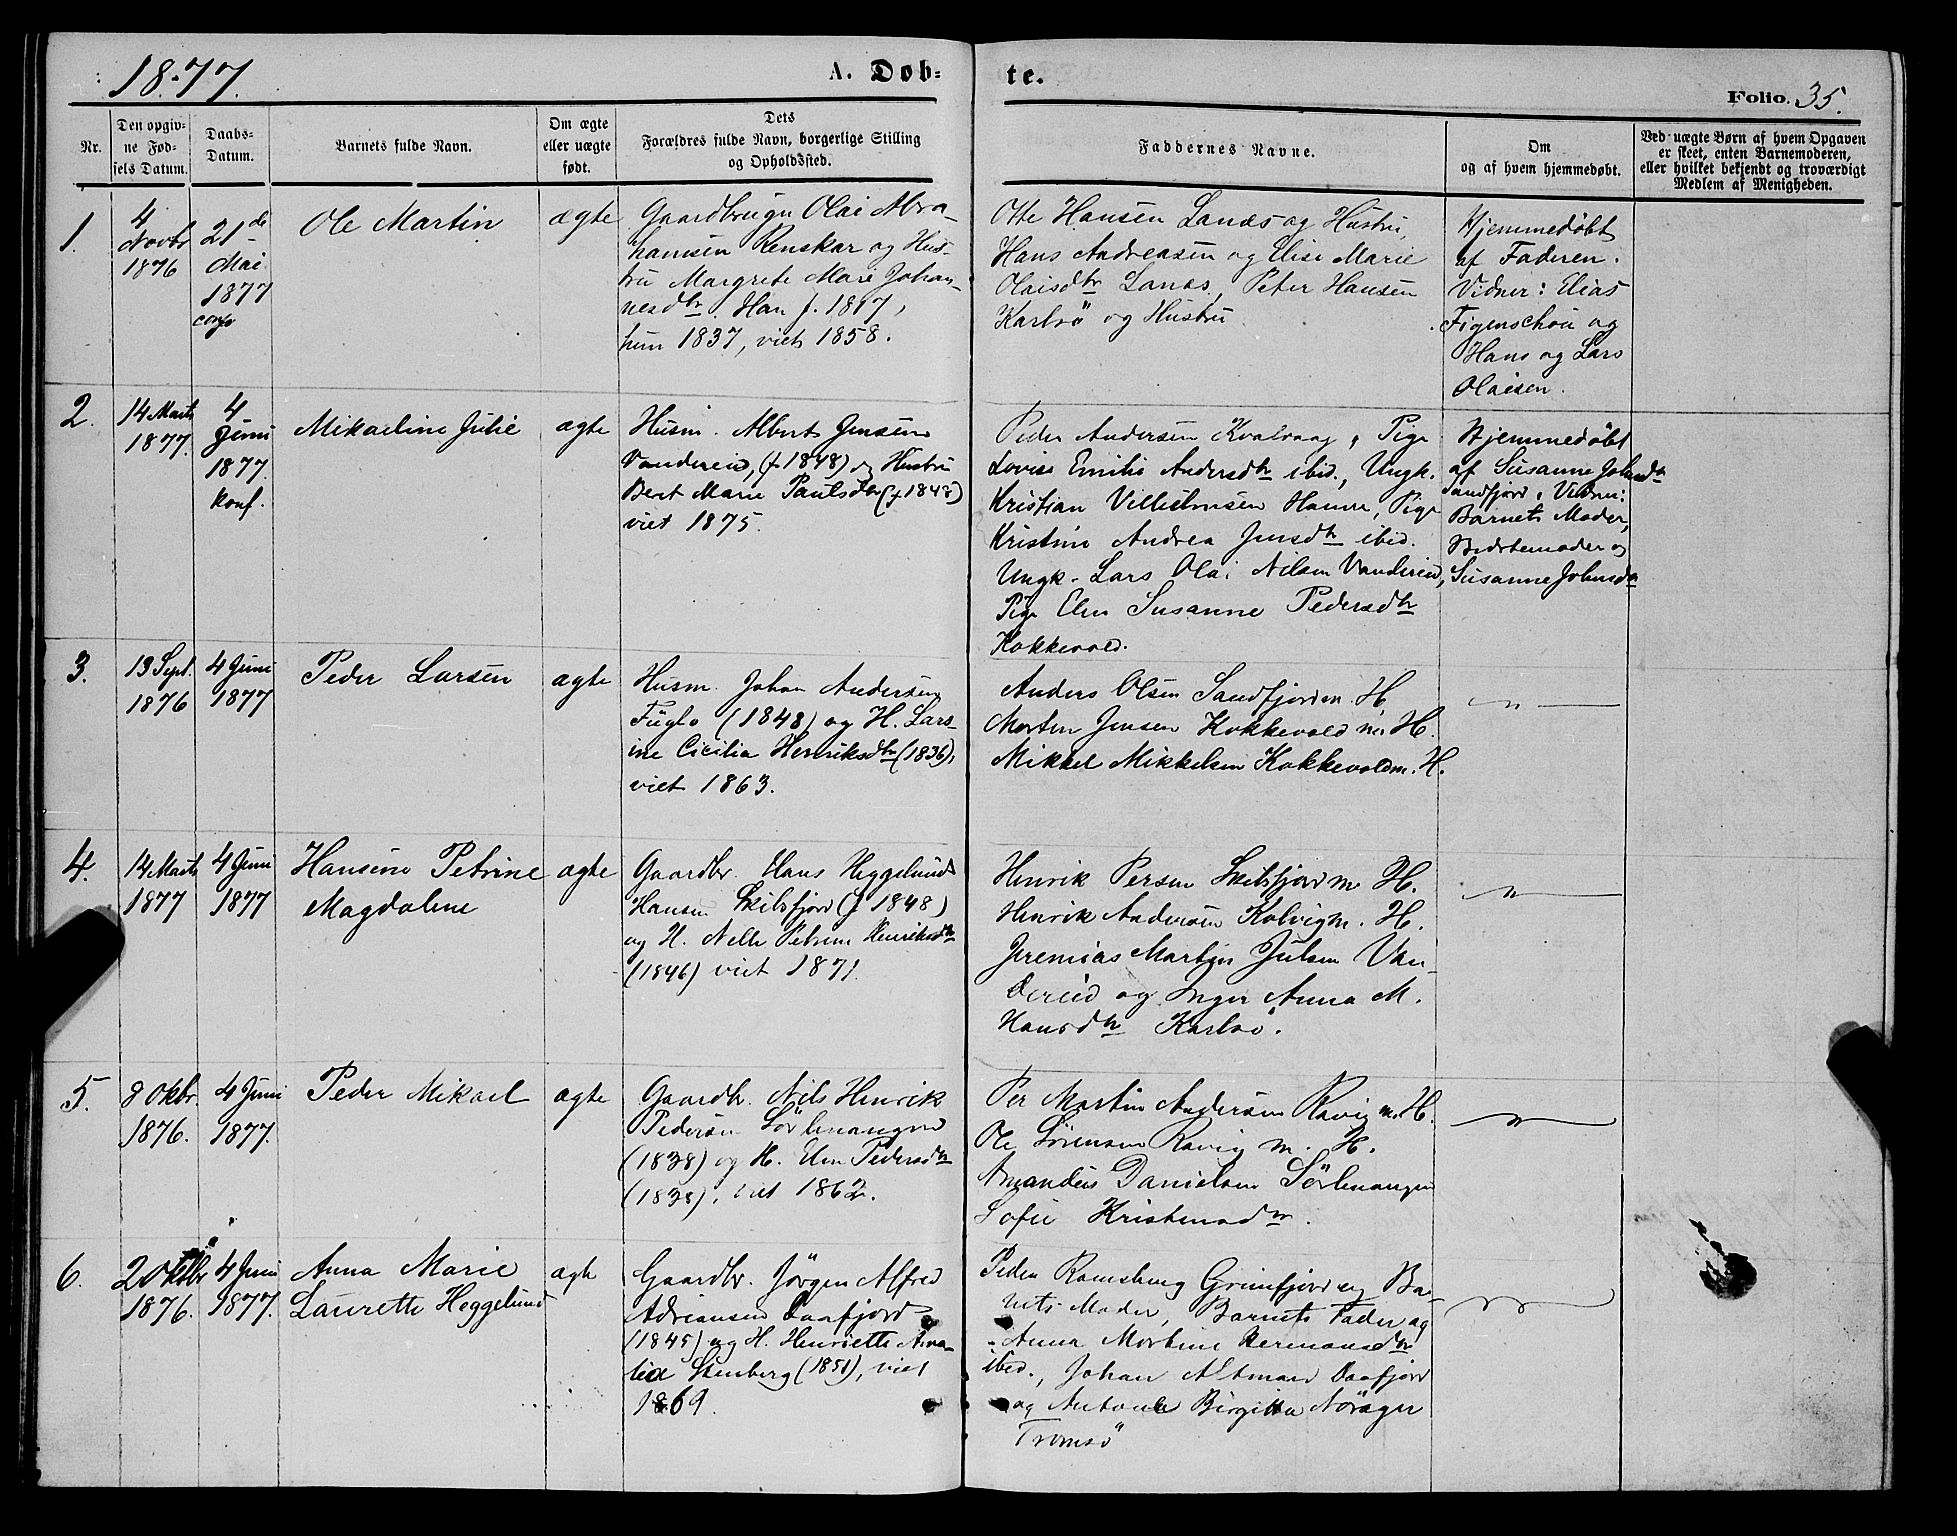 1877.
A. Døb-
te.
Folio. 35.
Nr.
Den opgiv-
ne Fød-
sels Datum.
Daabs-
Datum.
Barnets fulde Navn.
Om ægte
eller uægte
født.
Dets
Forældres fulde Navn, borgerlige Stilling
og Opholdssted.
Faddernes Navne.
Om
og af hvem hjemmedøbt.
Ved uægte Børn af hvem Opgaven
er skeet, enten Barnemoderen,
eller hvilket bekjendt og troværdigt
Medlem af Menigheden.
1.
4
Novbr
1876
21de
Mai
1877
conf
Ole Martin
ægte
Gaardbruger Olai Abra-
hamsen Renskar og Hus-
tru Margrete Marie Johan-
nesdtr. Han f. 1817,
hun 1837, viet 1858.
Otte Hansen Lanæs og Hustru,
Hans Andreasen og Elise Marie
Olaisdtr Lanæs, Peter Hansen
Karlsö og Hustru
Hjemmedøbt
af Faderen.
Vidner: Elias
Figenschou og
Hans og Lars
Olaisen.
2.
14 Marts
1877.
4
Juni
1877
konf.
Mikaeline Julie
ægte
Husm. Albert Jensen
Vandereid, (f 1848) og Hustru
Beret Marie Paulsdtr (f 1848)
viet 1875.
Peder Andersen Kvalvaag, Pige
Lovise Emilie Andersdtr ibid., Ungk.
Kristian Villumsen Hamre, Pige
Kristine Andrea Jensdtr ibid.
Ungk. Lars Olai Nilsen Vandereid,
Pige Elen Susanne Pedersdtr
Kokkevold.
Hjemmedøbt
af Susanne Johnsdtr
Sandfjord, Vidner:
Barnets Moder,
Bedstemoder og
Susanne Johnsdtr
3.
13 Sept.
1876
4 Juni
1877
Peder Larsen
ægte
Husm. Johan Andersen
Fuglø (1848) og H. Lars-
ine Cicilia Henriksdtr (1836),
viet 1863.
Anders Olsen Sandfjord m. H,
Morten Jensen Kokkevold m. H.
Mikkel Mikkelsen Kokkevold m. H.
— " —
4.
14 Marts
1877
4 Juni
1877
Hansine Petrine
Magdalene
ægte
Gaardbr. Hans Heggelund
Hansen Skibsfjord (f 1848)
og H. Nelle Petrine Henriksdtr
(1846) viet 1871.
Henrik Persen Skibsfjord m H.
Henrik Andersen Kolvig m. H.
Jeremias Martin Julsen Van-
dereid og Inger Anna M.
Hansdtr Karlsö.
— " —
5.
8 Okbr.
1876.
4 Juni
1877.
Peder Mikael
ægte
Gaardbr. Nils Henrik
Pedersen Sörlenangen
(1838) og H. Elen Pedersdtr
(1838), viet 1862.
Per Martin Andersen Ravig m. H.
Ole Sörensen Ravig m. H.
Amandus Danielsen Sörlenangen
Sofie Kristensdtr.
— " —
6.
2 Oktbr
1876.
4 Juni
1877.
Anna Marie
Laurette Heggelund
ægte
Gaardbr. Jörgen Alfred
Adriansen Daafjord
(1845) og H. Henriette Ama-
lia Stenberg (1851), viet
1869.
Peder Ramsberg Grimfjord og Bar-
nets Moder, Barnets Fader og
Anna Martine Hermansdtr
ibid., Johan Altmand Daafjord
og Antonle Birgitta Nöragen
Tromsö
— " —